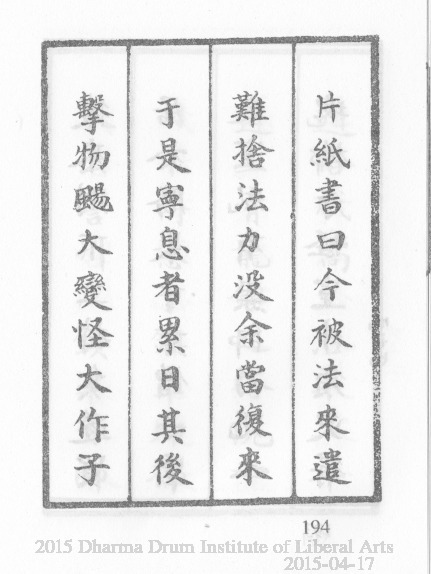 片紙書曰今被法來遣
難捨法力没余當復來
于是寧息者累日其後
擊物颺大變怪大作子
194
2015 Dharma Drum Institute of Liberal Arts
2015-04-17